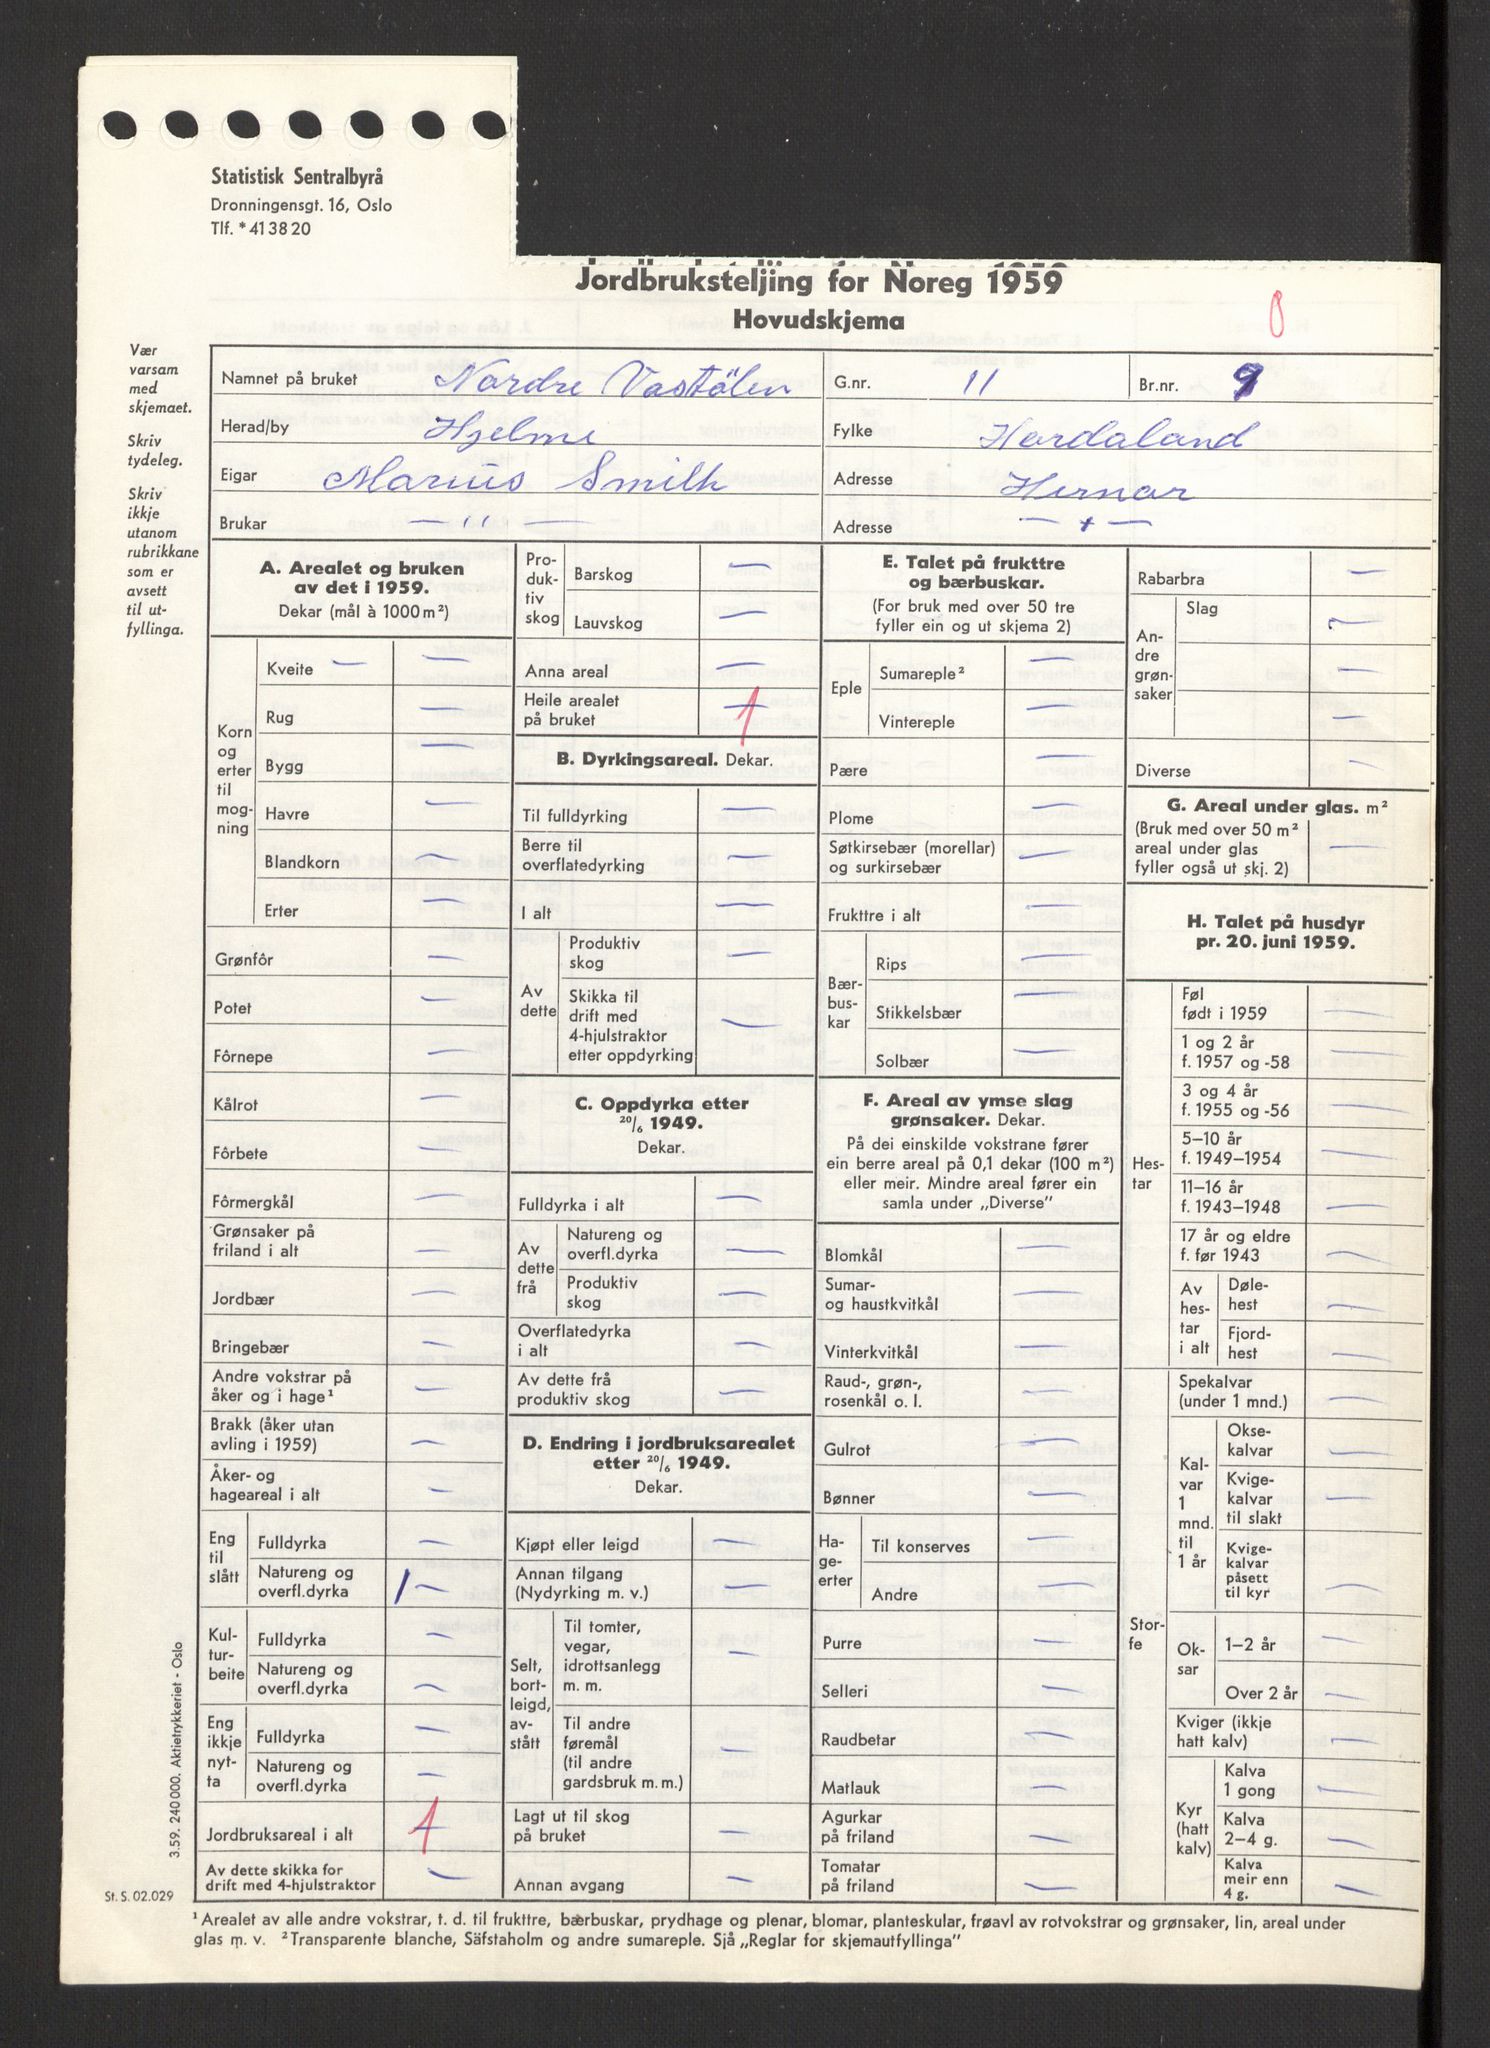 Statistisk Sentralbyrå
Dronningensgt. 16, Oslo
Tlf. * 41 38 20
Jordbruksteljing for Noreg 1959
Hovudskjema
0
Vær
varsam
med
skjemaet.
Skriv
tydeleg.
Skriv
ikkje
utanom
rubrikkane
som er
avsett
til ut-
fyllinga.
Namnet på bruket Nordre Vastölen G.nr. 11 Br.nr. 9
Herad/by Hjelme Fylke Hordaland
Eigar Marius Smith Adresse Hernar
Brukar — " — Adresse — " —
A. Arealet og bruken
av det i 1959.
Dekar (mål à 1000 m²)
Korn
og
erter
til
mog-
ning
Kveite — —
Rug —
Bygg —
Havre —
Blandkorn —
Erter —
Grønfôr —
Potet —
Fôrnepe —
Kålrot —
Fôrbete —
Fôrmergkål —
Grønsaker på
friland i alt —
Jordbær —
Bringebær —
Andre vokstrar på
åker og i hage¹ —
Brakk (åker utan
avling i 1959) —
Åker- og
hageareal i alt —
Eng
til
slått
Fulldyrka —
Natureng og
overfl.dyrka 1 —
Kul-
tur-
beite
Fulldyrka —
Natureng og
overfl.dyrka —
Eng
ikkje
nyt-
ta
Fulldyrka —
Natureng og
overfl.dyrka —
Jordbruksareal i alt — 1
Av dette skikka for
drift med 4-hjulstraktor —
Pro-
duk-
tiv
skog
Barskog —
Lauvskog —
Anna areal —
Heile arealet
på bruket — 1
B. Dyrkingsareal. Dekar.
Til fulldyrking —
Berre til
overflatedyrking —
I alt —
Av
dette
Produktiv
skog —
Skikka til
drift med
4-hjulstraktor
etter oppdyrking —
C. Oppdyrka etter
20/6 1949.
Dekar.
Fulldyrka i alt —
Av
dette
frå
Natureng og
overfl.dyrka —
Produktiv
skog —
Overflatedyrka
i alt —
Av dette frå
produktiv skog —
D. Endring i jordbruksarealet
etter 20/6 1949.
Dekar.
Kjøpt eller leigd —
Annan tilgang
(Nydyrking m. v.) —
Selt,
bort-
leigd,
av-
stått
Til tomter,
vegar,
idrottsanlegg
m. m. —
Til andre
føremål
(til andre
gardsbruk m. m.) —
Lagt ut til skog
på bruket —
Annan avgang —
E. Talet på frukttre
og bærbuskar.
(For bruk med over 50 tre
fyller ein og ut skjema 2)
Eple
Sumareple² —
Vintereple —
Pære —
Plome —
Søtkirsebær (morellar)
og surkirsebær —
Frukttre i alt —
Bær-
bus-
kar
Rips —
Stikkelsbær —
Solbær —
F. Areal av ymse slag
grønsaker. Dekar.
På dei einskilde vokstrane fører
ein berre areal på 0,1 dekar (100 m²)
eller meir. Mindre areal fører ein
samla under „Diverse”
Blomkål —
Sumar-
og haustkvitkål —
Vinterkvitkål —
Raud-, grøn-,
rosenkål o. l. —
Gulrot —
Bønner —
Ha-
ge-
erter
Til konserves —
Andre —
Purre —
Selleri —
Raudbetar —
Matlauk —
Agurkar
på friland —
Tomatar
på friland —
Rabarbra —
An-
dre
grøn-
saker
Slag
—
—
—
Diverse —
G. Areal under glas. m²
(Bruk med over 50 m²
areal under glas
fyller også ut skj. 2) —
H. Talet på husdyr
pr. 20. juni 1959.
Hes-
tar
Føl
født i 1959 —
1 og 2 år
f. 1957 og -58 —
3 og 4 år
f. 1955 og -56 —
5–10 år
f. 1949–1954 —
11–16 år
f. 1943–1948 —
17 år og eldre
f. før 1943 —
Av
hes-
tar
i alt
Døle-
hest —
Fjord-
hest —
Stor-
fe
Spekalvar
(under 1 mnd.) —
Kal-
var
1
mnd.
til
1 år
Okse-
kalvar —
Kvige-
kalvar
til slakt —
Kvige-
kalvar
påsett
til kyr —
Ok-
sar
1–2 år —
Over 2 år —
Kviger (ikkje
hatt kalv) —
Kyr
(hatt
kalv)
Kalva
1 gong —
Kalva
2–4 g. —
Kalva
meir enn
4 g. —
3.59. 240 000. Aktietrykkeriet - Oslo
St. S. 02.029
¹ Arealet av alle andre vokstrar, t. d. til frukttre, bærbuskar, prydhage og plenar, blomar, planteskular, frøavl av rotvokstrar og grønsaker, lin, areal under
glas m. v. ² Transparente blanche, Säfstaholm og andre sumareple. Sjå „Reglar for skjemautfyllinga”